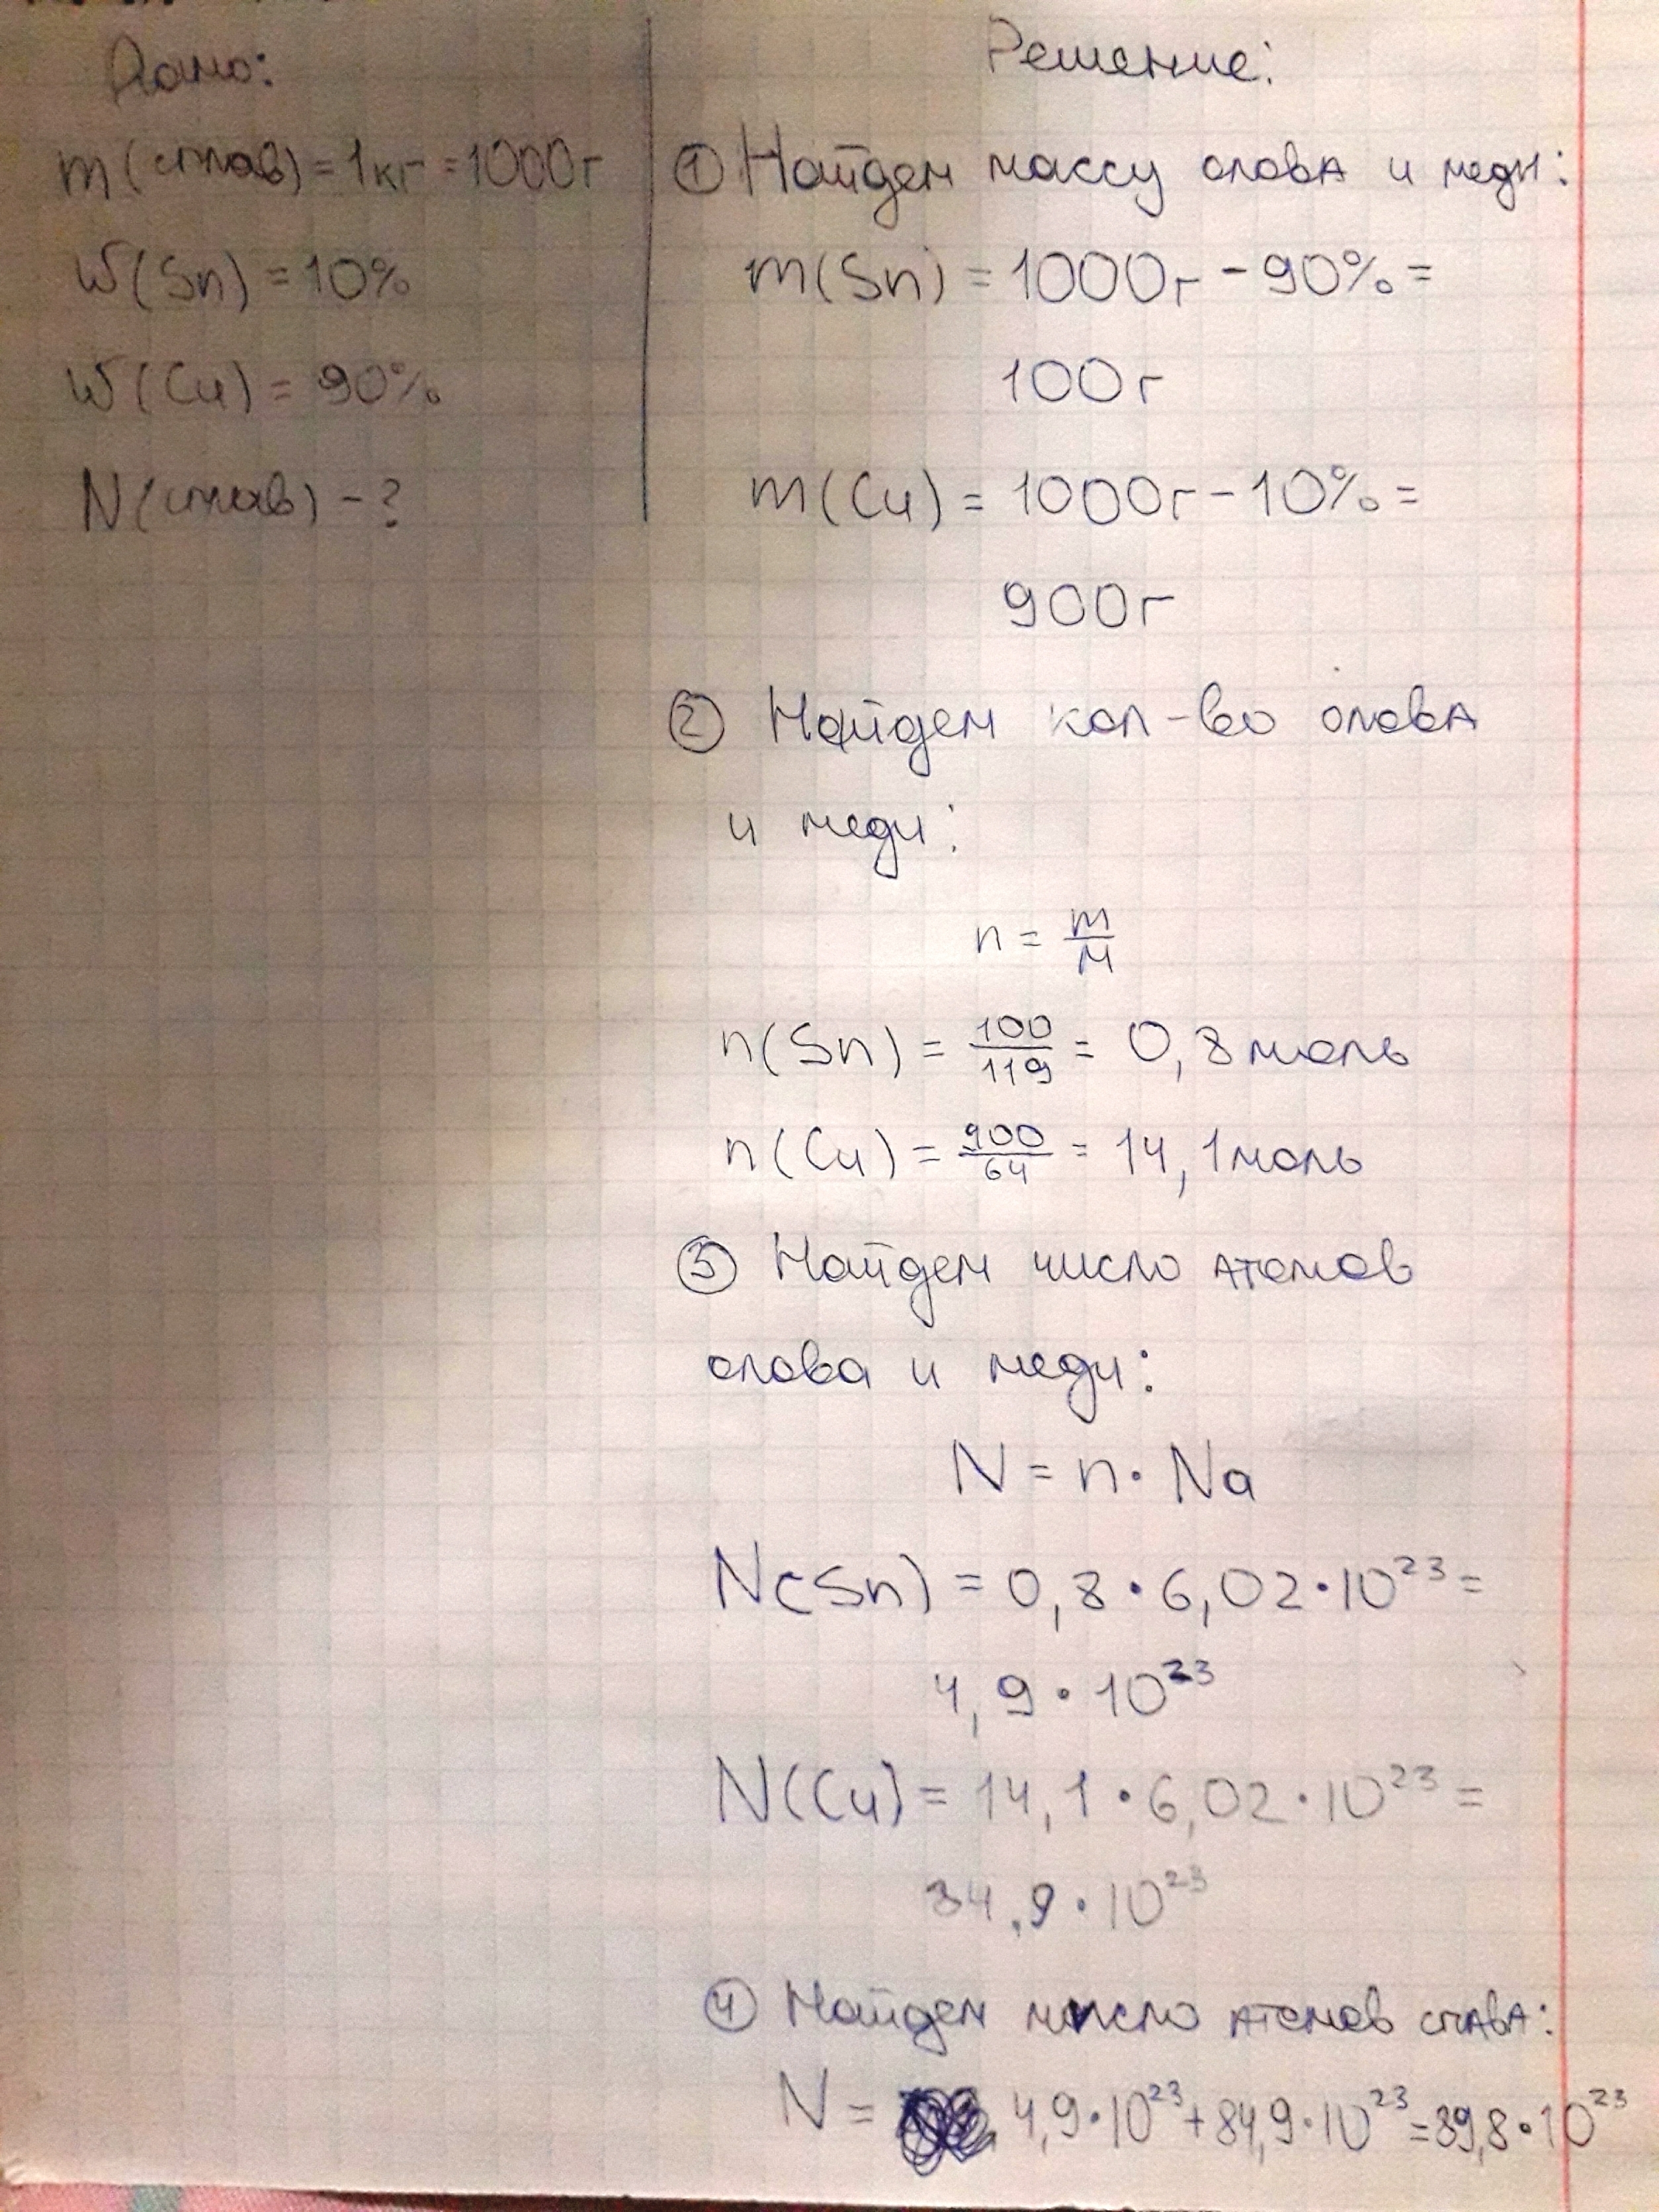 Дано:
m(сплав) = 1кг = 1000г
W(Sn) = 10%
W(Cu) = 90%
N(сплав) - ?
Решение:
① Найдем массу оловА и меди:
m(Sn) = 1000г - 90% =
100г
m(Cu) = 1000г - 10% =
900г
② Найдем кол-во оловА
и меди:
n = m/M
n(Sn) = 100/119 = 0,8 моль
n(Cu) = 900/64 = 14,1 моль
③ Найдем число атомов
олова и меди:
N = n · Na
N(Sn) = 0,8 · 6,02 · 10²³ =
4,9 · 10²³
N(Cu) = 14,1 · 6,02 · 10²³ =
84,9 · 10²³
④ Найдем число атомов сплавА:
N = 4,9 · 10²³ + 84,9 · 10²³ = 89,8 · 10²³